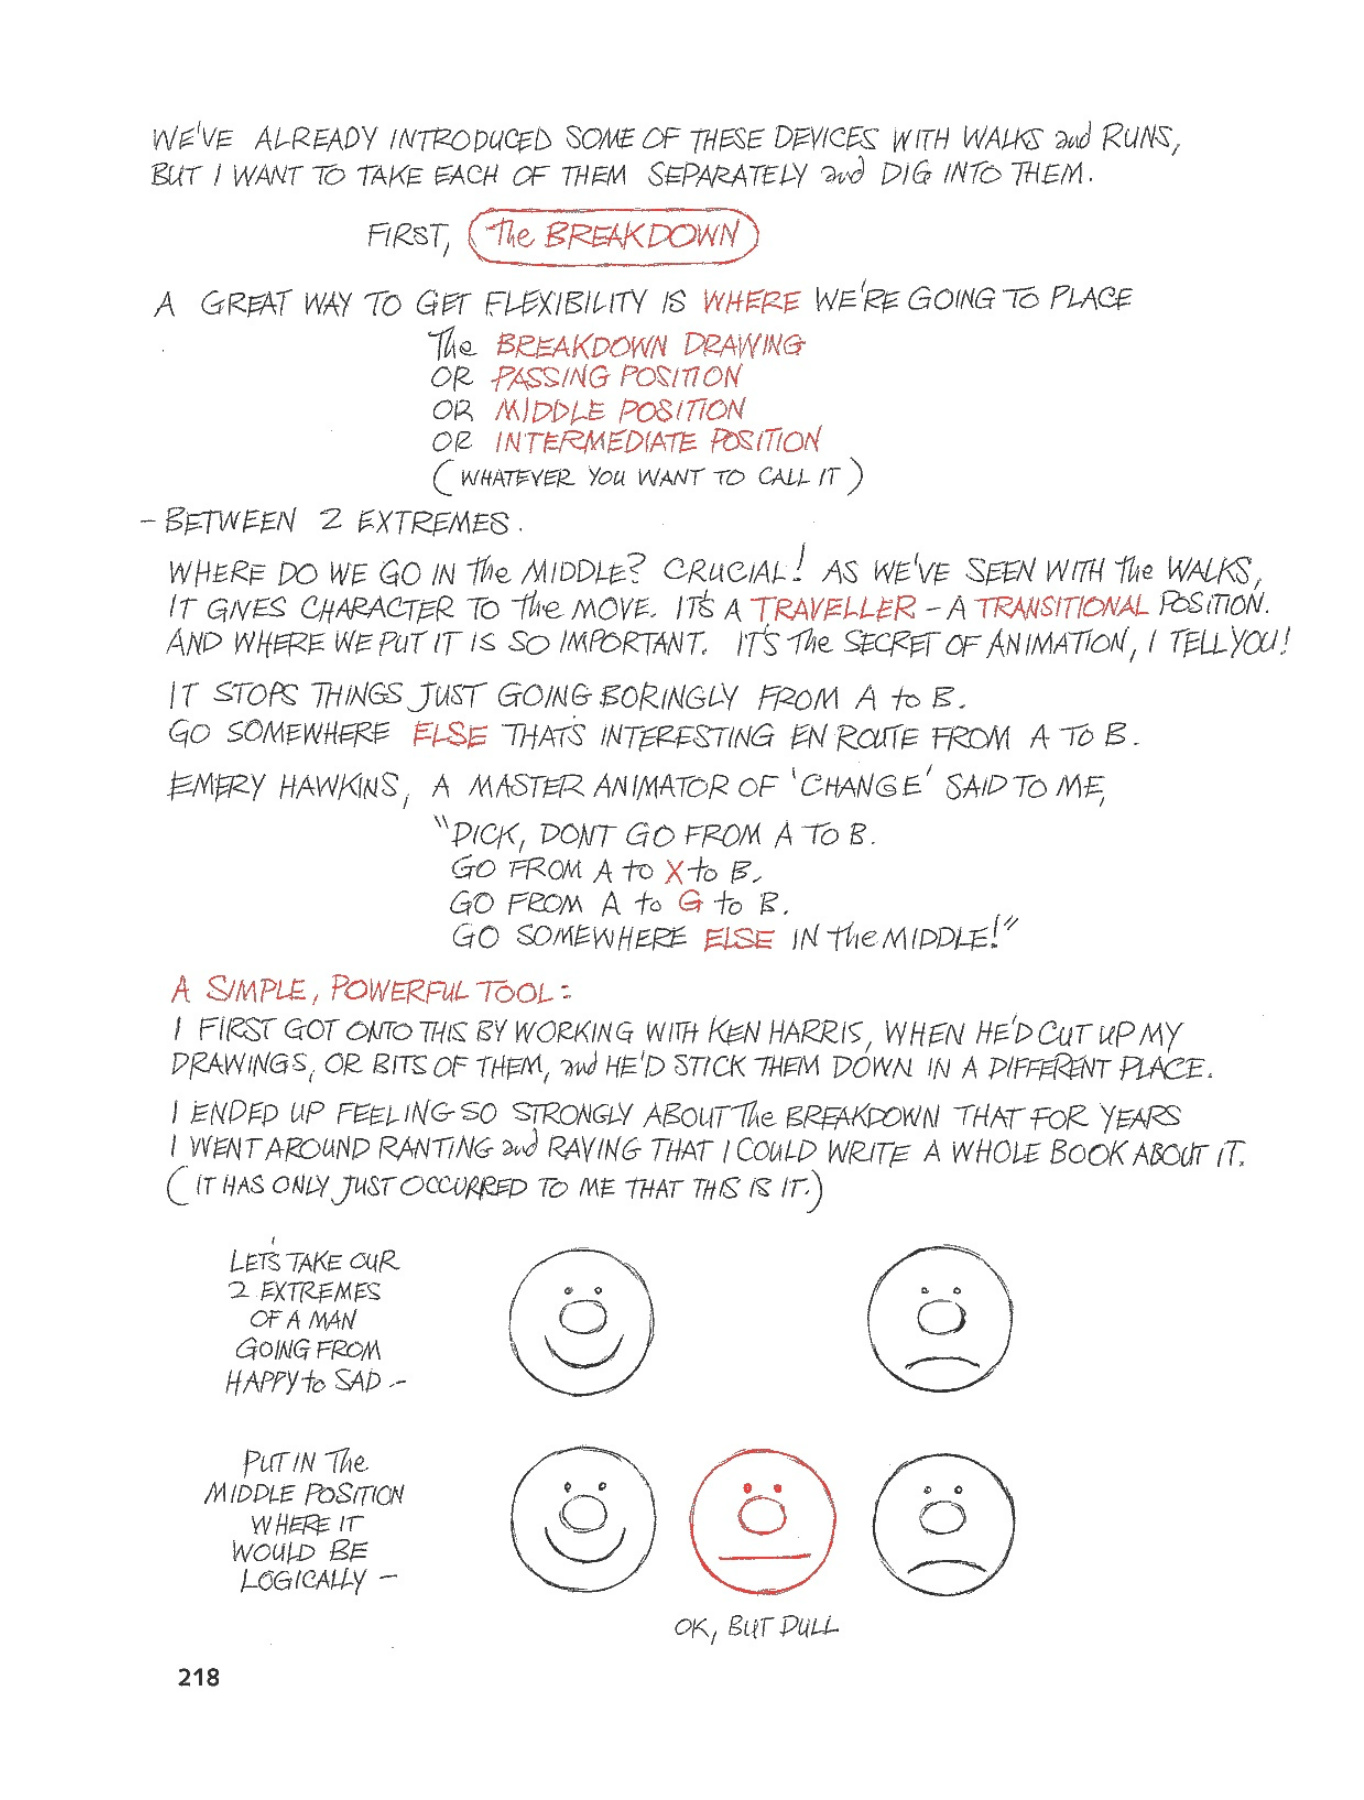 WE'VE ALREADY INTRODUCED SOME OF THESE DEVICES WITH WALKS and RUNS,
BUT I WANT TO TAKE EACH OF THEM SEPARATELY and DIG INTO THEM.
FIRST, The BREAKDOWN
A GREAT WAY TO GET FLEXIBILITY IS WHERE WE'RE GOING TO PLACE
The BREAKDOWN DRAWING
OR PASSING POSITION
OR MIDDLE POSITION
OR INTERMEDIATE POSITION
(WHATEVER YOU WANT TO CALL IT)
- BETWEEN 2 EXTREMES.
WHERE DO WE GO IN The MIDDLE? CRUCIAL! AS WE'VE SEEN WITH The WALKS,
IT GIVES CHARACTER TO The MOVE. IT'S A TRAVELLER - A TRANSITIONAL POSITION.
AND WHERE WE PUT IT IS SO IMPORTANT. IT'S The SECRET OF ANIMATION, I TELL YOU!
IT STOPS THINGS JUST GOING BORINGLY FROM A to B.
GO SOMEWHERE ELSE THAT'S INTERESTING EN ROUTE FROM A TO B.
EMERY HAWKINS, A MASTER ANIMATOR OF 'CHANGE' SAID TO ME,
"DICK, DONT GO FROM A TO B.
GO FROM A to X to B.
GO FROM A to G to B.
GO SOMEWHERE ELSE IN The MIDDLE!"
A SIMPLE, POWERFUL TOOL:
I FIRST GOT ONTO THIS BY WORKING WITH KEN HARRIS, WHEN HE'D CUT UP MY
DRAWINGS, OR BITS OF THEM, and HE'D STICK THEM DOWN IN A DIFFERENT PLACE.
I ENDED UP FEELING SO STRONGLY ABOUT The BREAKDOWN THAT FOR YEARS
I WENT AROUND RANTING and RAVING THAT I COULD WRITE A WHOLE BOOK ABOUT IT.
(IT HAS ONLY JUST OCCURRED TO ME THAT THIS IS IT.)
LET'S TAKE OUR
2 EXTREMES
OF A MAN
GOING FROM
HAPPY to SAD --
PUT IN The
MIDDLE POSITION
WHERE IT
WOULD BE
LOGICALLY -
OK, BUT DULL
218